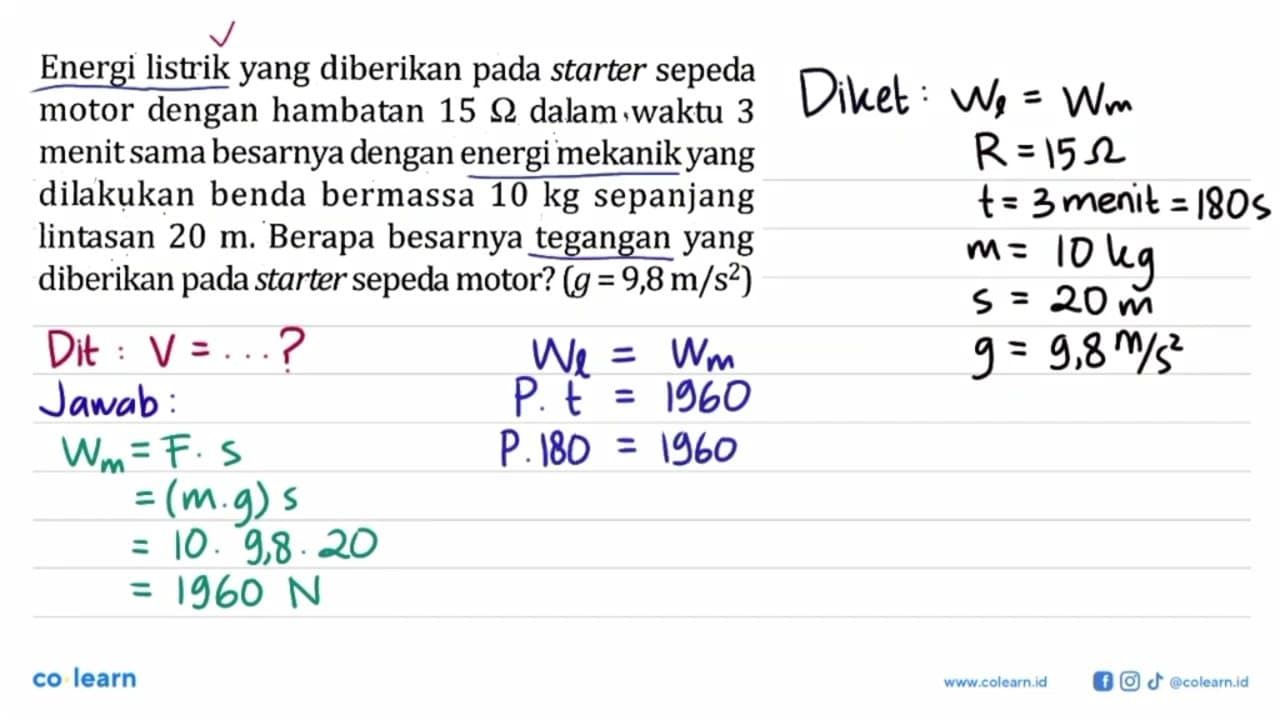 Energi listrik yang diberikan pada starter sepeda
motor dengan hambatan 15 Ω dalam waktu 3
menit sama besarnya dengan energi mekanik yang
dilakukan benda bermassa 10 kg sepanjang
lintasan 20 m. Berapa besarnya tegangan yang
diberikan pada starter sepeda motor? (g = 9,8 m/s²)
Diket : Wl = Wm
R = 15 Ω
t = 3 menit = 180s
m = 10 kg
s = 20 m
g = 9,8 m/s²
Dit : V = ...?
Jawab :
Wm = F. s
= (m.g) s
= 10. 9,8. 20
= 1960 N
Wl = Wm
P. t = 1960
P. 180 = 1960
co learn
www.colearn.id
@colearn.id